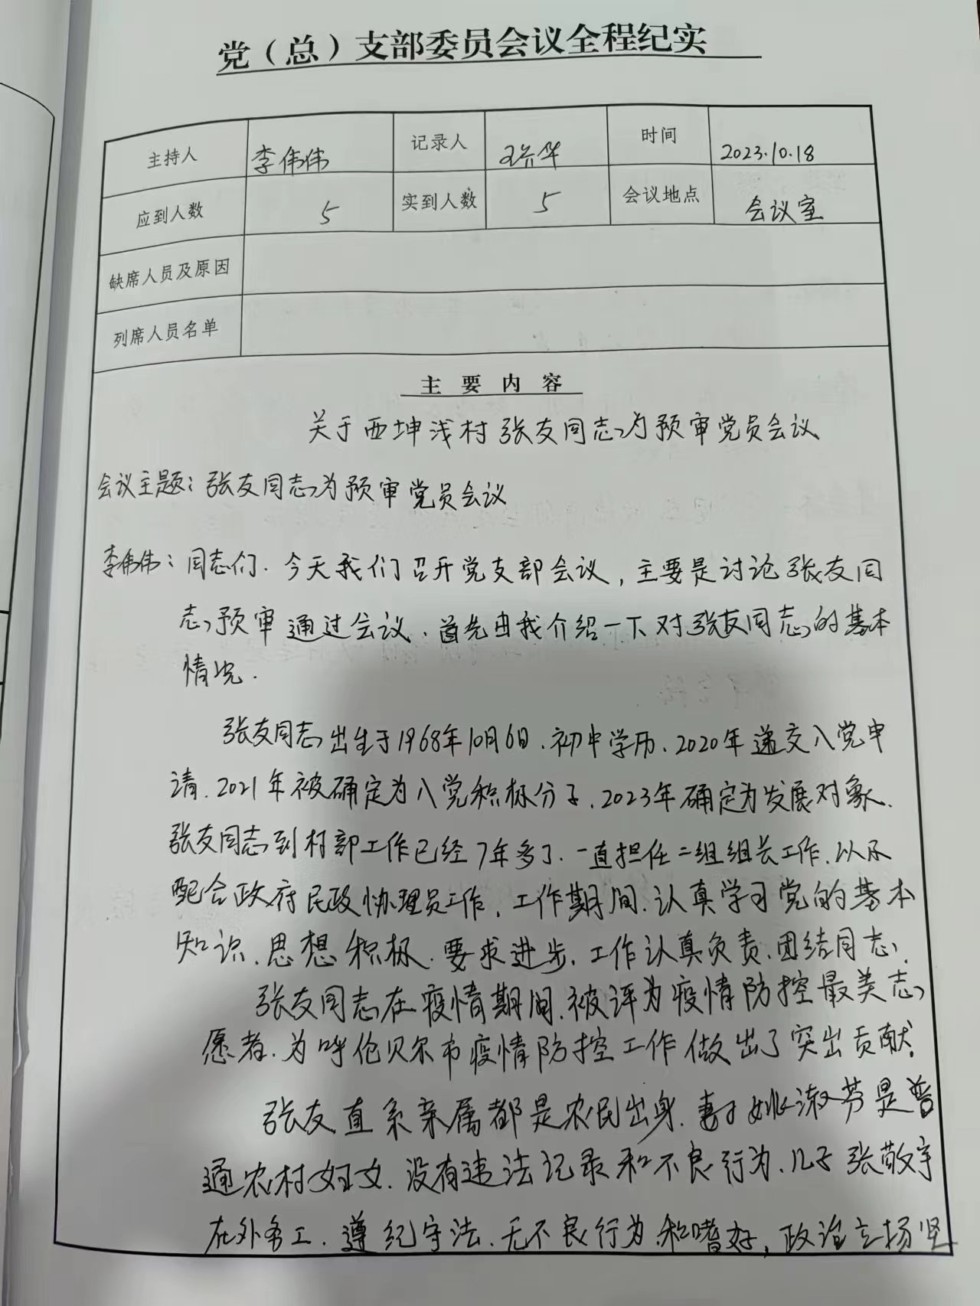 党（总）支部委员会议全程纪实
主持人 李伟伟 记录人 华 时间 2023.10.18
应到人数 5 实到人数 5 会议地点 会议室
缺席人员及原因
列席人员名单
主 要 内 容
关于西坤浅村张友同志为预审党员会议
会议主题：张友同志为预审党员会议
李伟伟：同志们.今天我们召开党支部会议，主要是讨论张友同
志预审通过会议.首先由我介绍一下对张友同志的基本
情况.
张友同志出生于1968年10月6日.初中学历.2020年递交入党申
请.2021年被确定为入党积极分子.2023年确定为发展对象.
张友同志到村部工作已经7年多了.一直担任二组组长工作.以及
配合政府民政协理员工作，工作期间.认真学习党的基本
知识.思想积极.要求进步.工作认真负责.团结同志.
张友同志在疫情期间.被评为疫情防控最美志
愿者.为呼伦贝尔市疫情防控工作做出了突出贡献.
张友直系亲属都是农民出身.妻子姚淑芬是普
通农村妇女.没有违法记录和不良行为.儿子张敬宇
在外务工.遵纪守法.无不良行为和嗜好，政治立场坚